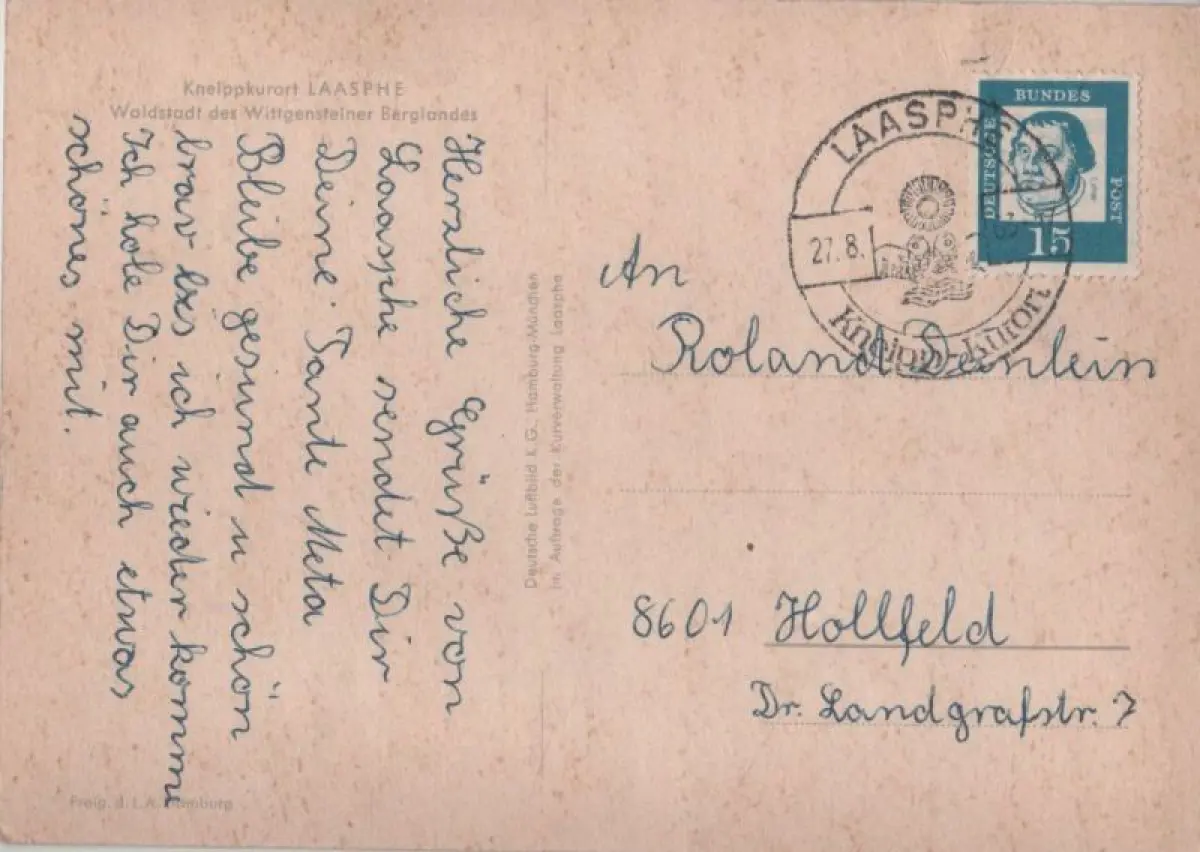 Kneippkurort LAASPHE
Waldstadt des Wittgensteiner Berglandes
Herzliche Grüße von
Laasphe sendet Dir
Deine Tante Meta
Bleibe gesund u schön
brav bis ich wieder komme
Ich hole Dir auch etwas
schönes mit.
Freig. d. L.A. Hamburg
Deutsche Luftbild K.G., Hamburg-München
Im Auftrage der Kurverwaltung Laasphe
LAASPHE
27.8.
Kneipp-Kurort
DEUTSCHE
BUNDES
POST
Luther
15
An
Roland Deinlein
8601 Hollfeld
Dr. Landgrafstr. 7